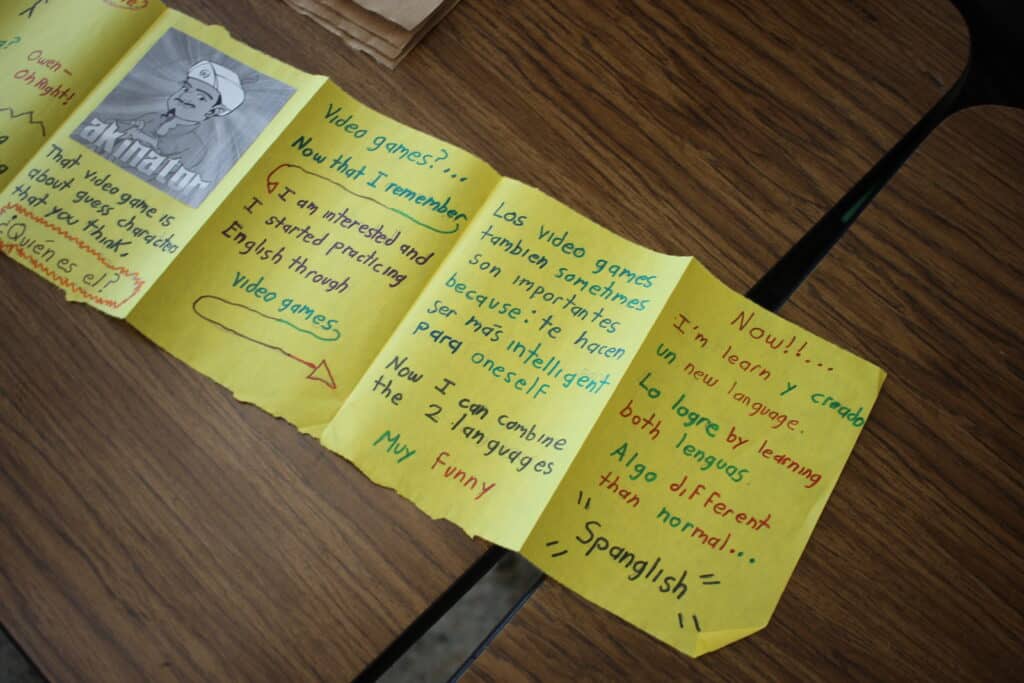 Owen-
Oh Right!
akinator
That video game is
about guess character
that you think.
¿Quién es el?
Video games?...
Now that I remember
I am interested and
I started practicing
English through
video games.
Los video games
tambien sometimes
son importantes
because: te hacen
ser más intelligent
para oneself
Now I can combine
the 2 languages
Muy funny
Now!!...
I'm learn y creado
un new language.
Lo logre by learning
both lenguas.
Algo different
than normal...
"Spanglish"